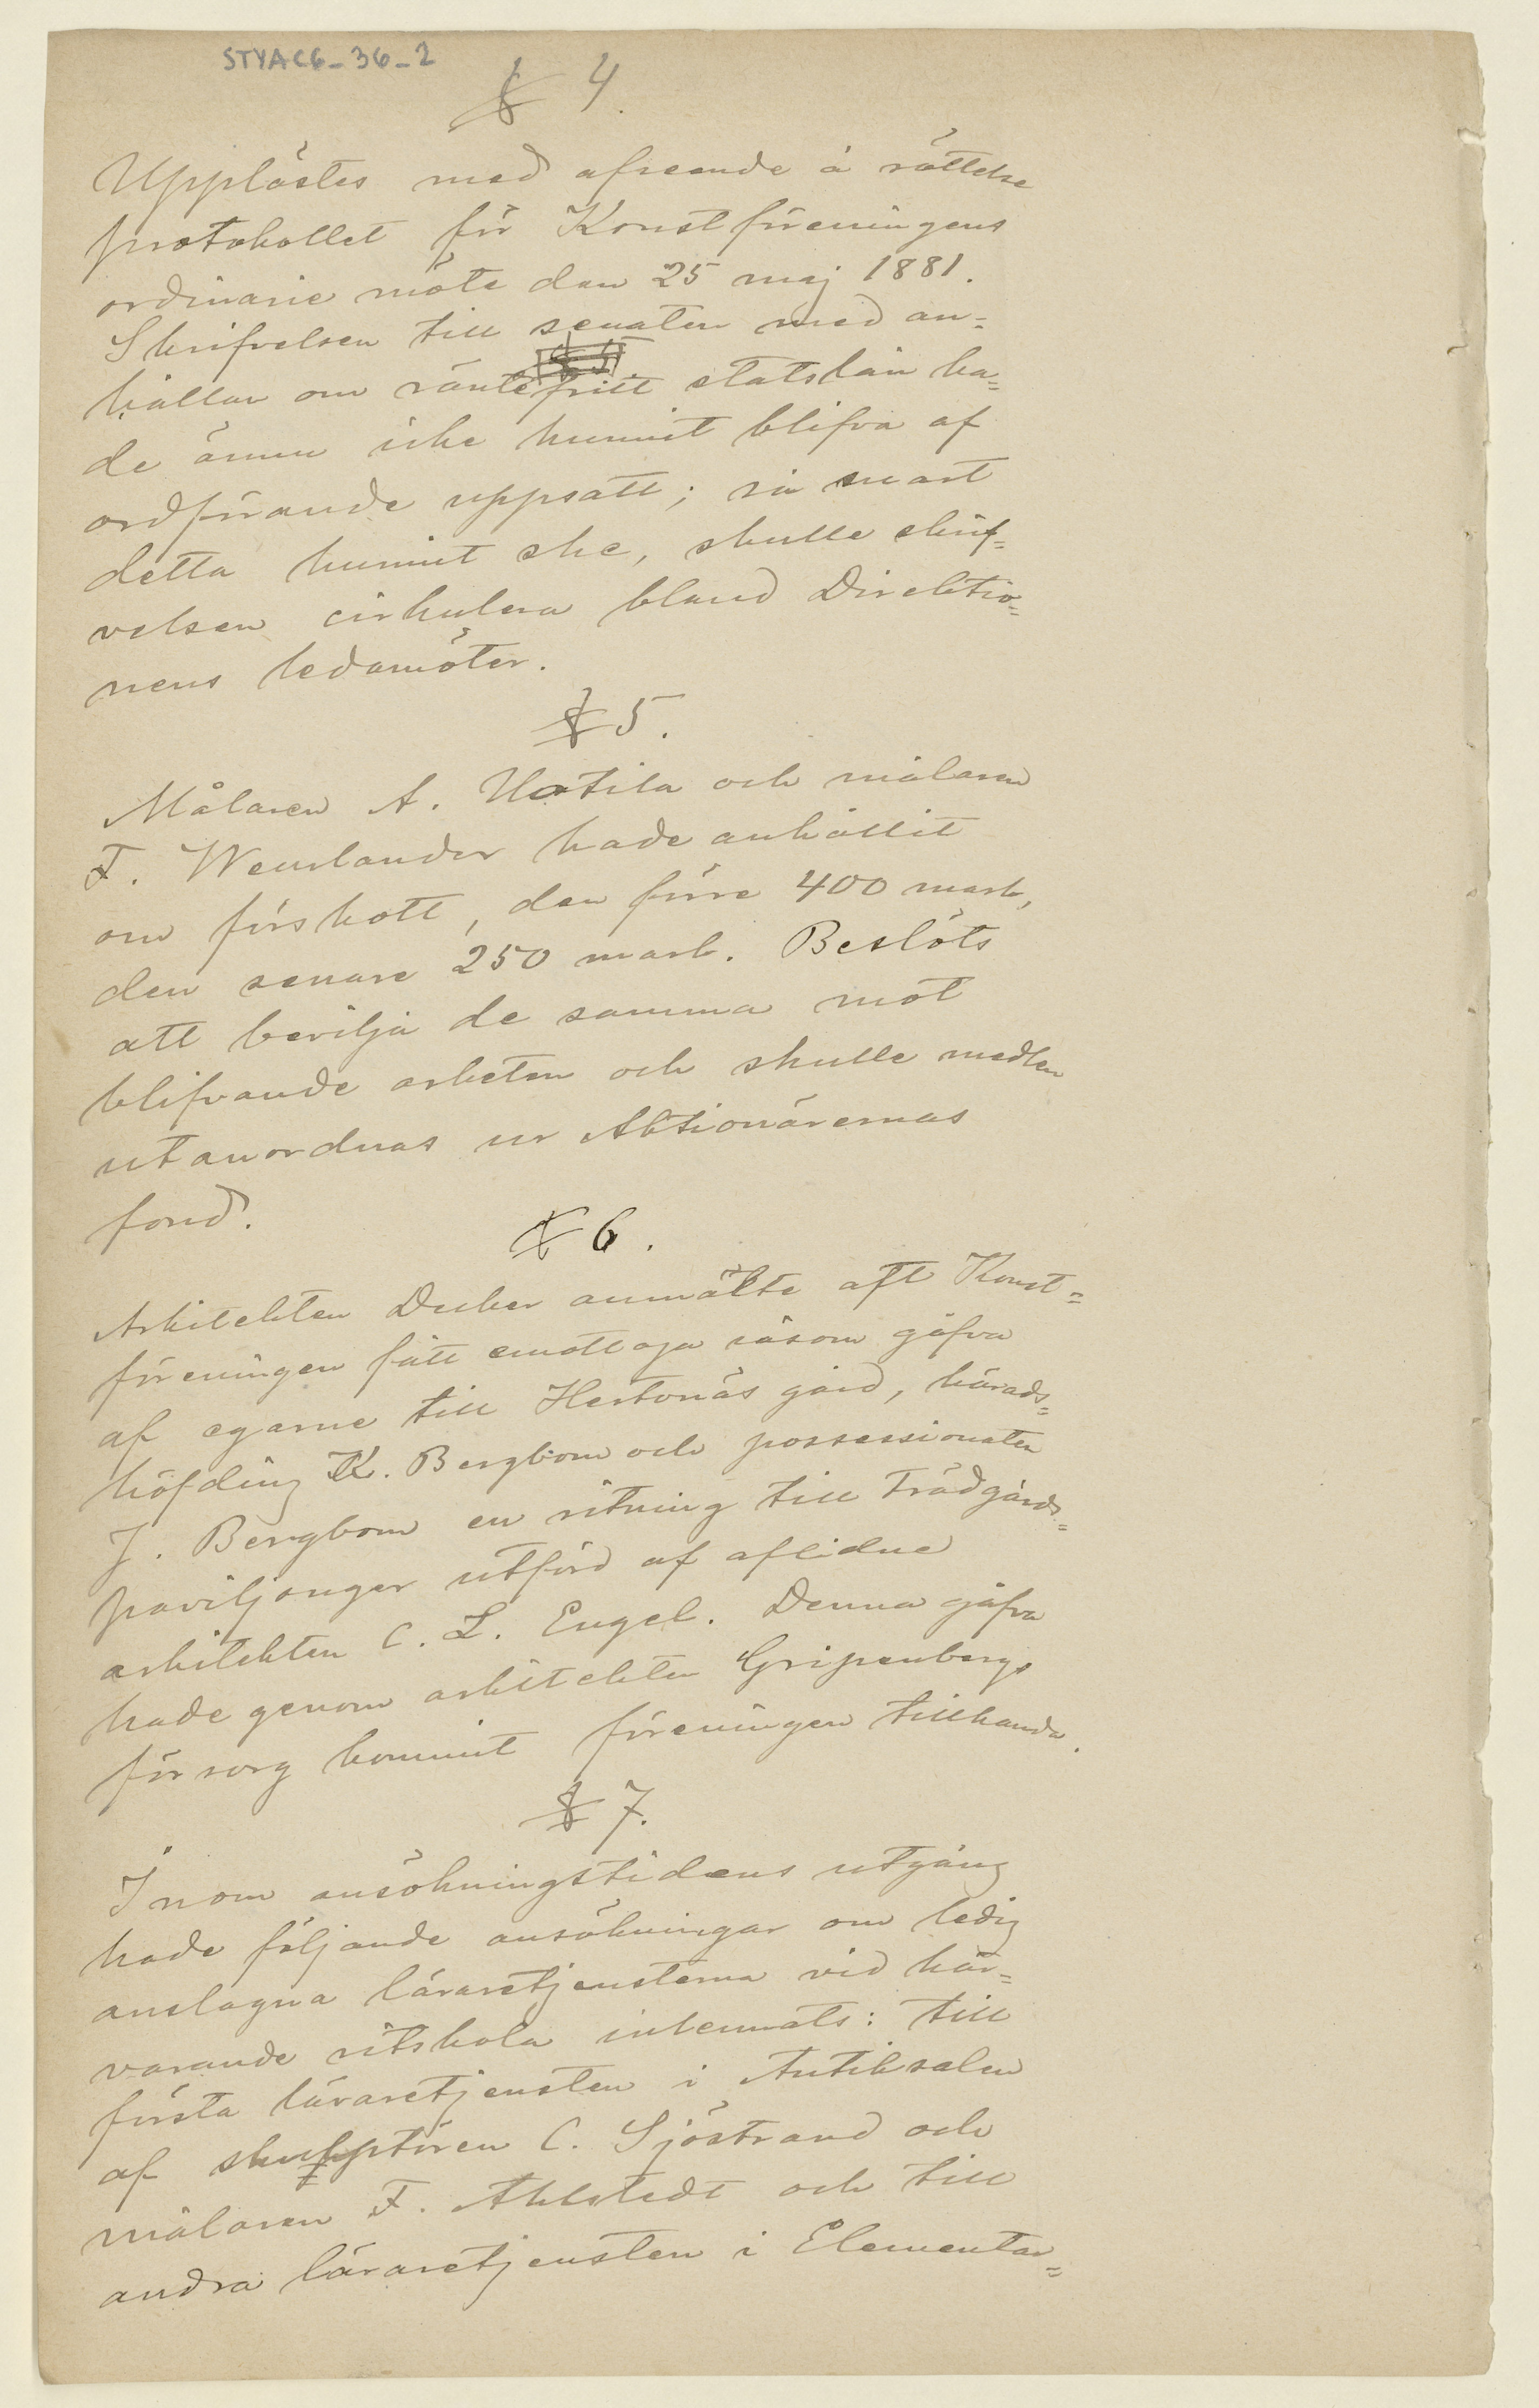 STYAC6_36_2
§ 4.
Upplästes med afseende å rättelse
protokollet för Konstföreningens
ordinarie möte den 25 maj 1881.
Skrifvelsen till senaten med an=
hållan om räntefritt statslån ha=
de ännu icke hunnit blifva af
ordförande uppsatt; så snart
detta hunnit ske, skulle skrif=
velsen cirkulera bland Direktio=
nens ledamöter.
§ 5.
Målaren A. Uotila och målaren
T. Wenrlander hade anhållit
om förskott, den förre 400 mark,
den senare 250 mark. Beslöts
att bevilja de samma mot
blifvande arbeten och skulle medlen
utanordnas ur Aktionärernas
fond.
§ 6.
Arkitekten Decker anmälte att Konst=
föreningen fått emottaga såsom gåfva
af egarne till Hertonäs gård, härads=
höfding K. Bergbom och possessionaten
J. Bergbom en ritning till Trädgårds=
paviljonger utförd af aflidne
arkitekten C. L. Engel. Denna gåfva
hade genom arkitekten Gripenbergs
försorg kommit föreningen tillhanda.
§ 7.
Inom ansökningstidens utgång
hade följande ansökningar om ledig
anslagna läraretjensterna vid här=
varande ritskola inlemnats: till
första läraretjensten i Antiksalen
af skulptören C. Sjöstrand och
målaren F. Ahlstedt och till
andra läraretjensten i Elementar=